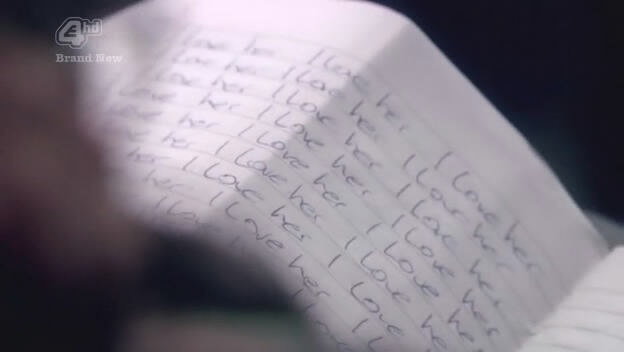 4hd
Brand New
love her I love her I love her
love her I love her I love her
love her I love her I love her
love her I love her I love her
her I love her I love her
her I love her I love her
I love her I love